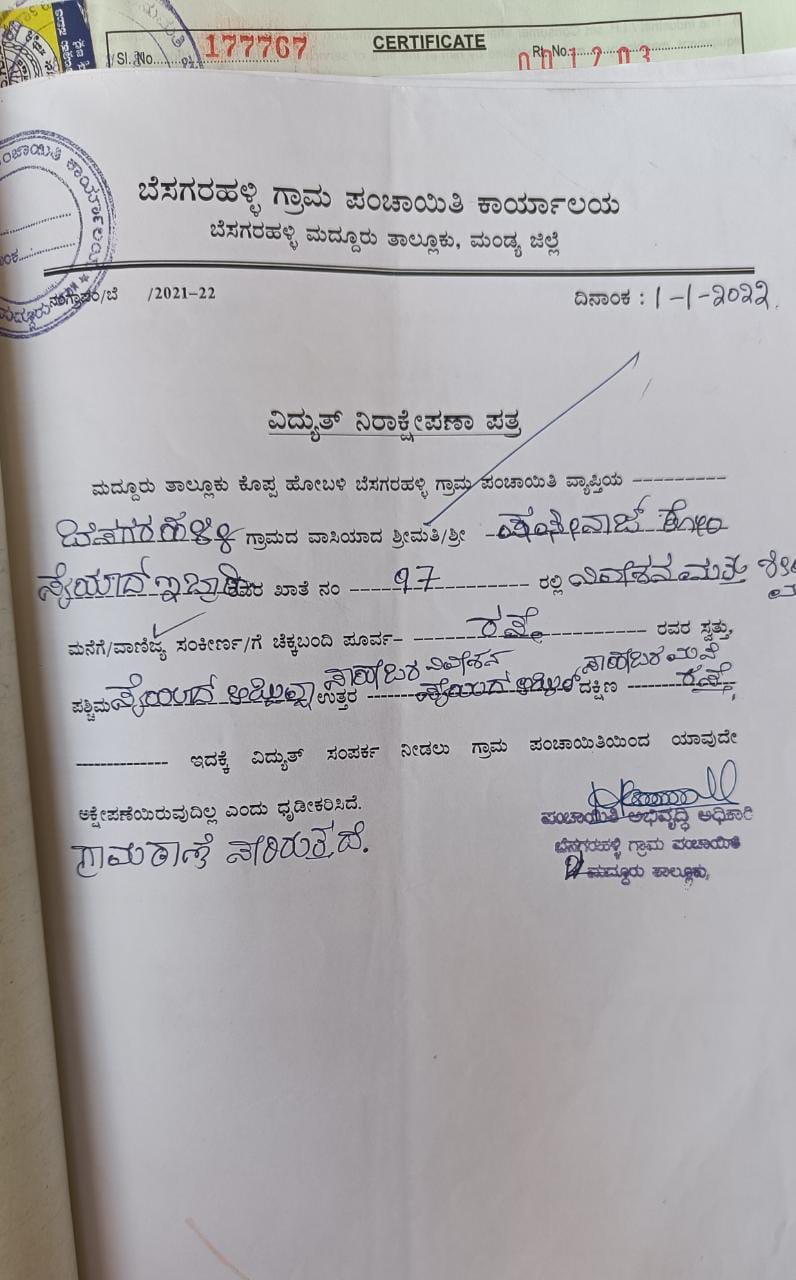 Sl. No. 177767 CERTIFICATE RI. No. 001203
ಬೆಸಗರಹಳ್ಳಿ ಗ್ರಾಮ ಪಂಚಾಯಿತಿ ಕಾರ್ಯಾಲಯ
ಬೆಸಗರಹಳ್ಳಿ ಮದ್ದೂರು ತಾಲ್ಲೂಕು, ಮಂಡ್ಯ ಜಿಲ್ಲೆ
/2021-22 ದಿನಾಂಕ : 1-1-2022.
ವಿದ್ಯುತ್ ನಿರಾಕ್ಷೇಪಣಾ ಪತ್ರ
ಮದ್ದೂರು ತಾಲ್ಲೂಕು ಕೊಪ್ಪ ಹೋಬಳಿ ಬೆಸಗರಹಳ್ಳಿ ಗ್ರಾಮ ಪಂಚಾಯಿತಿ ವ್ಯಾಪ್ತಿಯ ----------
ಬೆಸಗರಹಳ್ಳಿ ಗ್ರಾಮದ ವಾಸಿಯಾದ ಶ್ರೀಮತಿ/ಶ್ರೀ ಕೋಂ
ಸೈಯದ್ ಖಾತೆ ನಂ ---- 97 ---------- ರಲ್ಲಿ ನಿವೇಶನ ಮತ್ತು
ಮನೆಗೆ/ವಾಣಿಜ್ಯ ಸಂಕೀರ್ಣ/ಗೆ ಚೆಕ್ಕಬಂದಿ ಪೂರ್ವ- ------- ರಸ್ತೆ ---------- ರವರ ಸ್ವತ್ತು,
ಸಾಹೇಬರ ನಿವೇಶನ ಸಾಹೇಬರ ಮನೆ
ಪಶ್ಚಿಮ ಸೈಯದ್ ಉತ್ತರ ಸೈಯದ್ ದಕ್ಷಿಣ ------ ರಸ್ತೆ
------------- ಇದಕ್ಕೆ ವಿದ್ಯುತ್ ಸಂಪರ್ಕ ನೀಡಲು ಗ್ರಾಮ ಪಂಚಾಯಿತಿಯಿಂದ ಯಾವುದೇ
ಅಕ್ಷೇಪಣೆಯಿರುವುದಿಲ್ಲ ಎಂದು ಧೃಡೀಕರಿಸಿದೆ.
ಗ್ರಾಮಠಾಣೆ ಸೇರಿರುತ್ತದೆ.
ಪಂಚಾಯಿತಿ ಅಭಿವೃದ್ಧಿ ಅಧಿಕಾರಿ
ಬೆಸಗರಹಳ್ಳಿ ಗ್ರಾಮ ಪಂಚಾಯಿತಿ
ಮದ್ದೂರು ತಾಲ್ಲೂಕು,